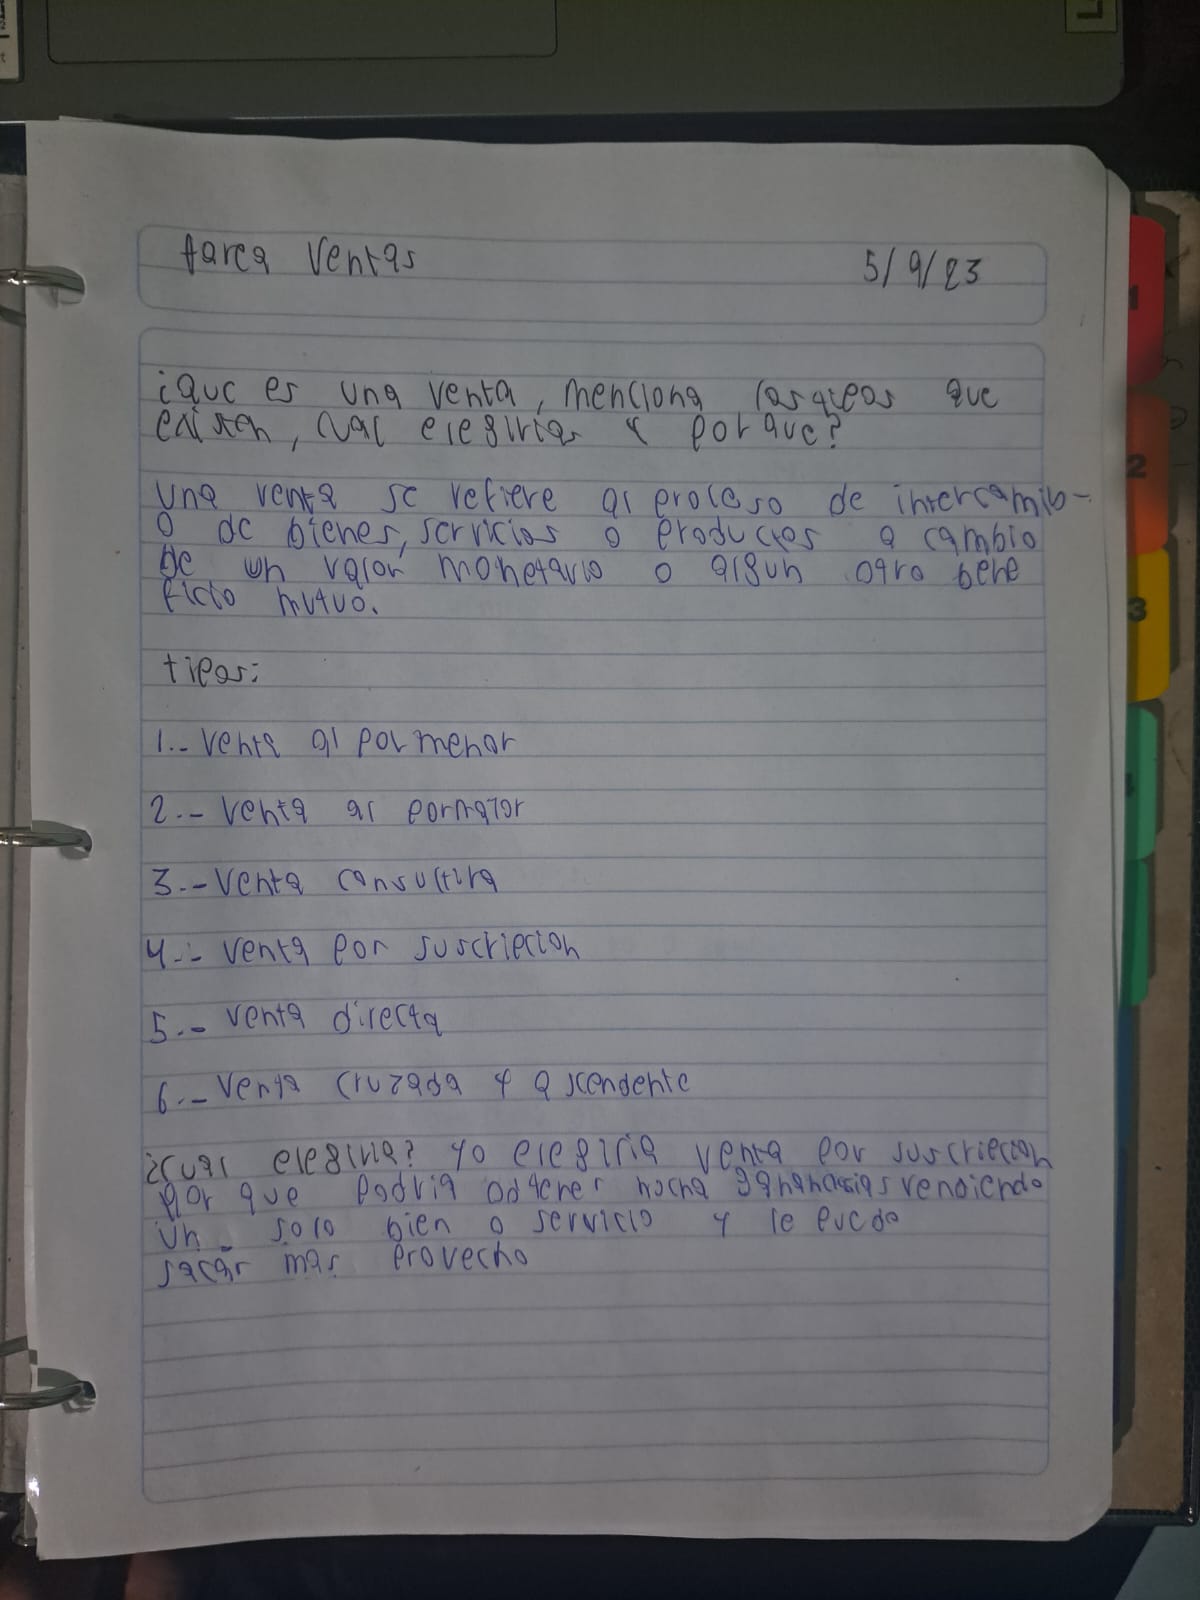 tarea Ventas
5/9/23
¿que es una venta, menciona los que
existen, cual elegirias y por que?
una venta se refiere al proceso de intercambio-
o de bienes, servicios o productos a cambio
de un valor monetario o algun otro bene
ficio mutuo.
tipos:
1.- venta al por menor
2.- venta al pormayor
3.- Venta consultiva
4.- venta por suscripcion
5.- venta directa
6.- Venta cruzada y ascendente
¿cual elegiria? yo elegiria venta por suscripcion
por que podria obtener mucha ganancias vendiendo
un solo bien o servicio y le puedo
sacar mas provecho